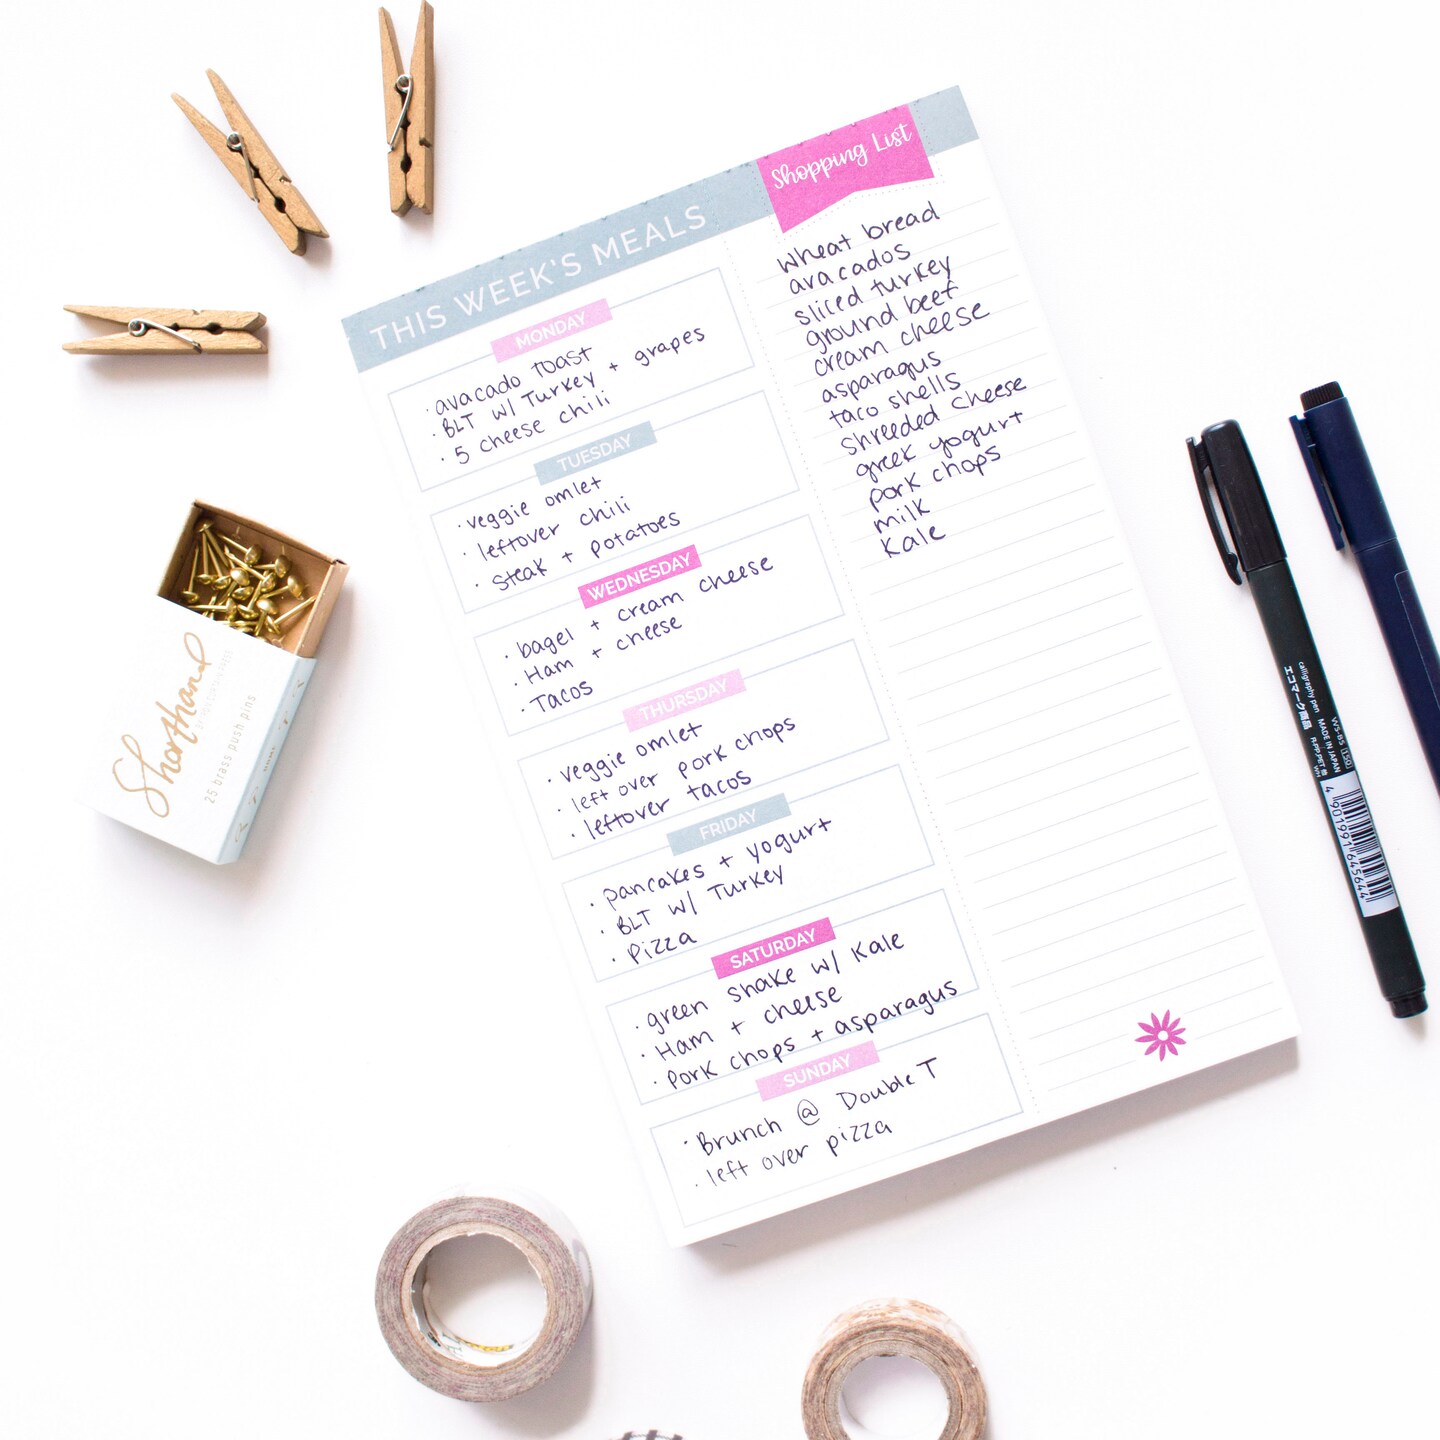 THIS WEEK'S MEALS
MONDAY
· avacado toast
· BLT w/ Turkey + grapes
· 5 cheese chili
TUESDAY
· veggie omlet
· leftover chili
· steak + potatoes
WEDNESDAY
· bagel + cream cheese
· Ham + cheese
· Tacos
THURSDAY
· veggie omlet
· left over pork chops
· leftover tacos
FRIDAY
· pancakes + yogurt
· BLT w/ Turkey
· Pizza
SATURDAY
· green shake w/ Kale
· Ham + cheese
· Pork chops + asparagus
SUNDAY
· Brunch @ Double T
· left over pizza
Shopping List
wheat bread
avacados
sliced turkey
ground beef
cream cheese
asparagus
taco shells
shreeded cheese
greek yogurt
pork chops
milk
kale
Shorthand
25 brass push pins
calligraphy pen
エコマーク商品
MADE IN JAPAN
4 901991 645644